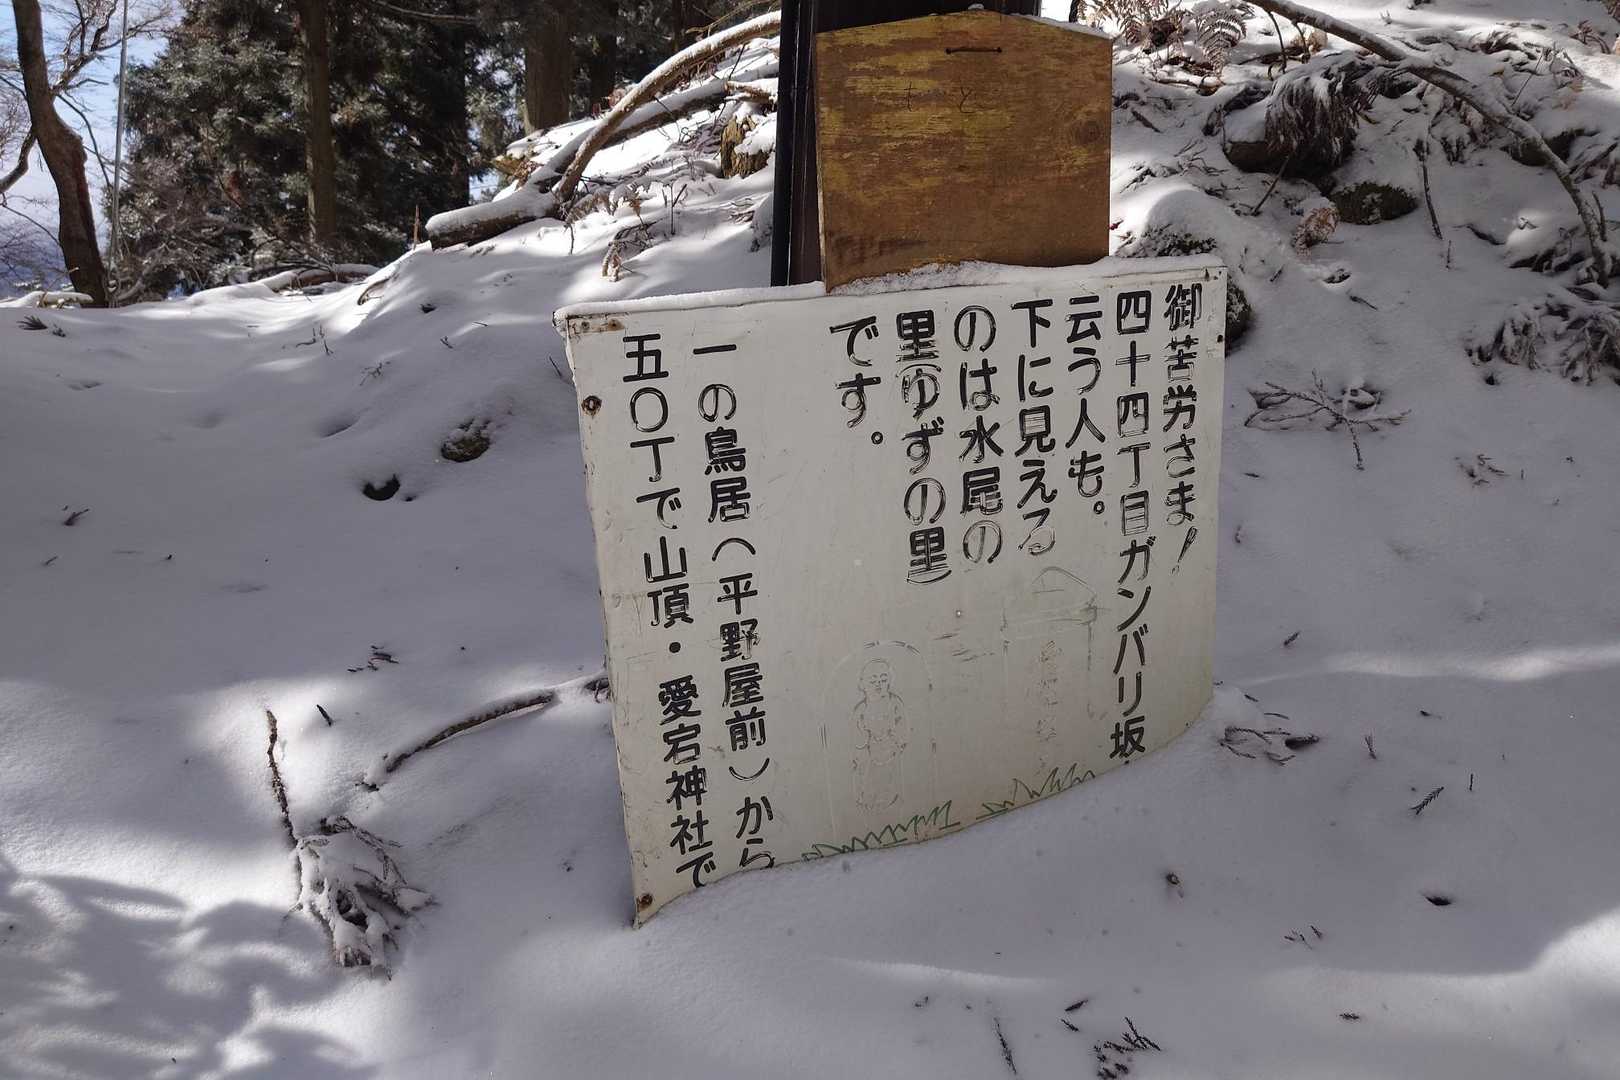 御苦労さま!
四十四丁目ガンバリ坂・
云う人も。
下に見える
のは水尾の
里(ゆずの里)
です。
一の鳥居(平野屋前)から
五〇丁で山頂・愛宕神社で